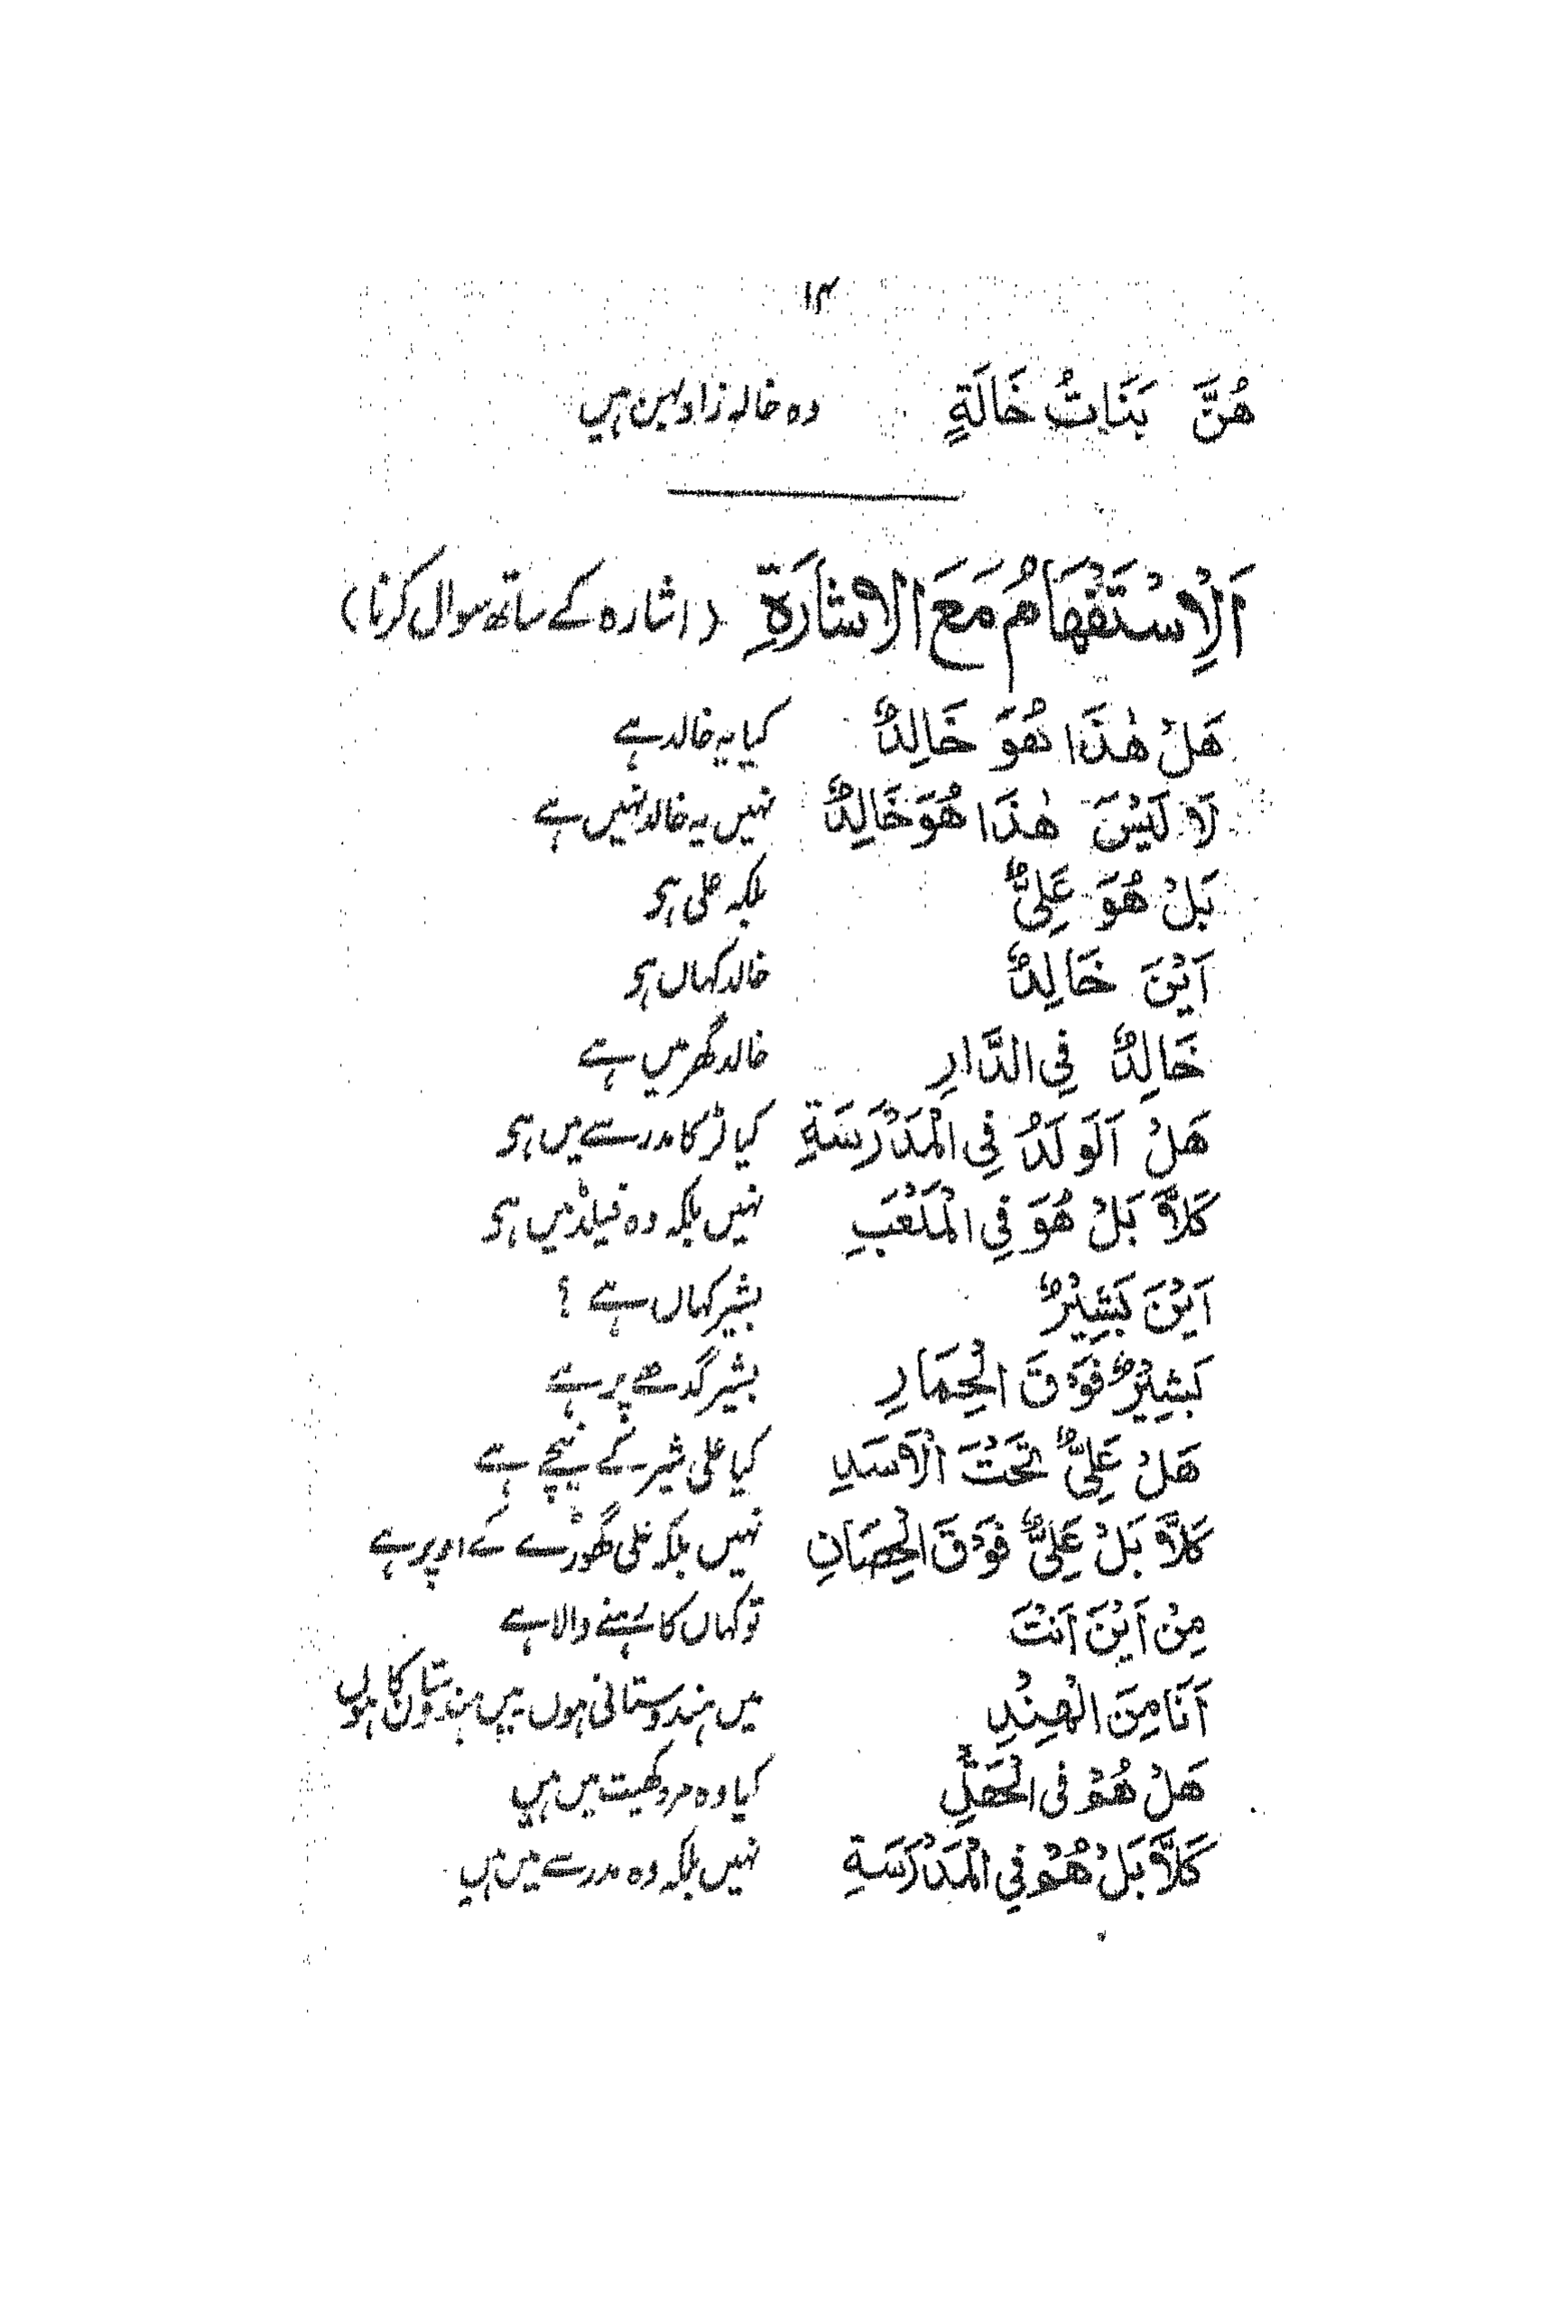 ۱۴
هُنَّ بَنَاتُ خَالَةٍ وہ خالہ زاد بہن ہیں
اَلْاِسْتَفْهَامُ مَعَ الاشَارَةِ (اشارہ کے ساتھ سوال کرنا)
هَلْ هٰذَا هُوَ خَالِدٌ کیا یہ خالد ہے
لَا لَيْسَ هٰذَا هُوَ خَالِدٌ نہیں یہ خالد نہیں ہے
بَلْ هُوَ عَلِيٌّ بلکہ علی ہے
اَيْنَ خَالِدٌ خالد کہاں ہے
خَالِدٌ فِي الدَّارِ خالد گھر میں ہے
هَلْ اَلَوَلَدُ فِي الْمَدْرَسَةِ کیا لڑکا مدرسے میں ہے
كَلَّا بَلْ هُوَ فِي الْمَلْعَبِ نہیں بلکہ وہ فیلڈ میں ہے
اَيْنَ بَشِيْرٌ بشیر کہاں ہے ؟
بَشِيْرٌ فَوْقَ الْحِمَارِ بشیر گدھے پر ہے
هَلْ عَلِيٌّ تَحْتَ الْاَسَدِ کیا علی شیر کے نیچے ہے
كَلَّا بَلْ عَلِيٌّ فَوْقَ الْحِصَانِ نہیں بلکہ علی گھوڑے کے اوپر ہے
مِنْ اَيْنَ اَنْتَ تو کہاں کا رہنے والا ہے
اَنَا مِنَ الْهِنْدِ میں ہندوستانی ہوں میں ہندوستان کا ہوں
هَلْ هُمْ فِى الْحَقْلِ کیا وہ مرد کھیت میں ہیں
كَلَّا بَلْ هُمْ فِي الْمَدْرَسَةِ نہیں بلکہ وہ مدرسے میں ہیں